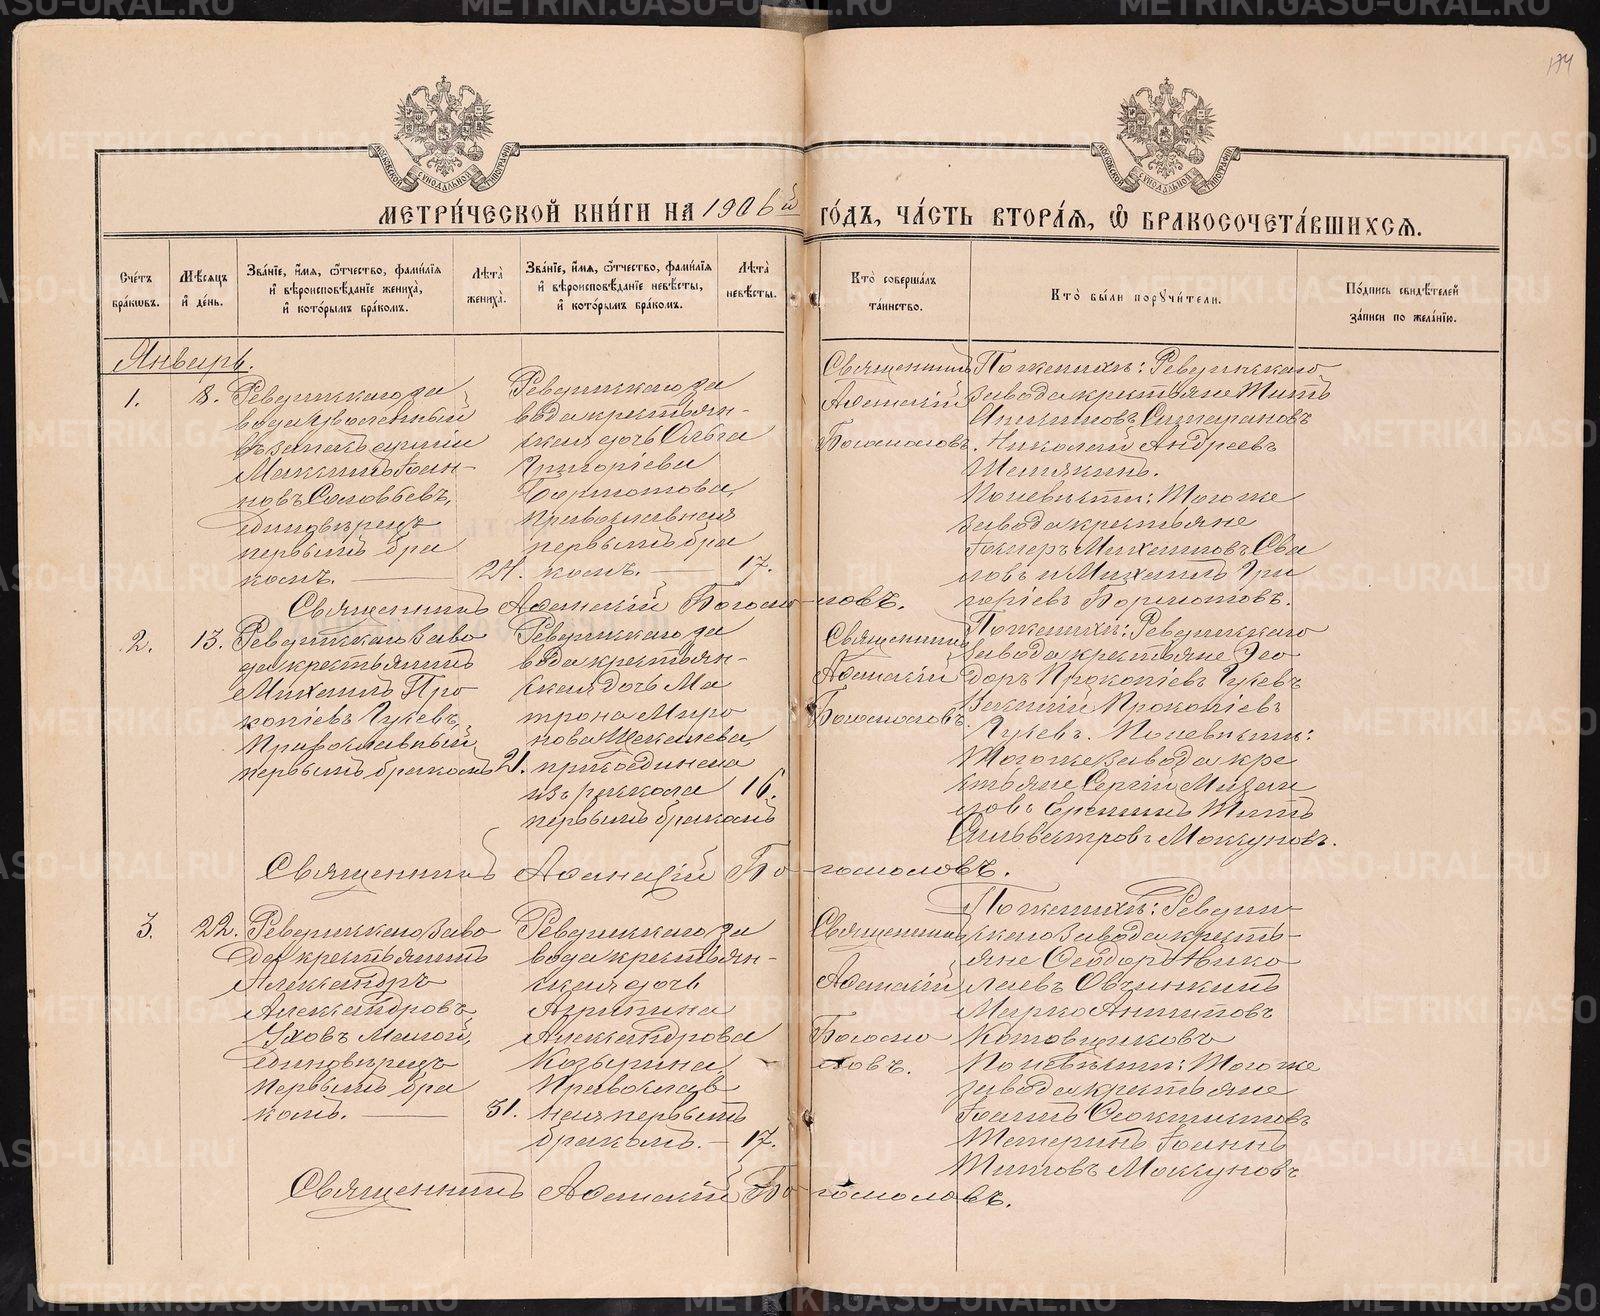 174
МЕТРИ́ЧЕСКОЙ КНИ́ГИ НА 1906й ГО́ДЪ, ЧА́СТЬ ВТОРА́Я, Ѡ БРАКОСОЧЕТА́ВШИХСЯ.
Сче́тъ бра́кѡвъ.
Мѣ́сяцъ и де́нь.
Зва́нїе, и́мя, ѻ́тчество, фамı́лїя и вѣроисповѣ́данїе жениха̀, и кото́рымъ бра́комъ.
Лѣ́та жениха̀.
Зва́нїе, и́мя, ѻ́тчество, фамı́лїя и вѣроисповѣ́данїе невѣ́сты, и кото́рымъ бра́комъ.
Лѣ́та невѣ́сты.
Кто̀ соверша́лъ та́инство.
Кто̀ бы́ли порꙋчи́тели.
По́дпись свидѣ́телей за́писи по жела́нїю.
Январь.
1.
8.
Ревдинскаго за
вода уволенный
въ запасъ армiи
Максимъ Iоан-
новъ Соловьевъ,
единовѣрецъ
первымъ бра
комъ.
24.
Ревдинскаго за
вода крестьян-
ская дочь Ольга
Григорiева
Бормотова,
православная
первымъ бра
комъ.
17.
Священникъ
Аѳанасiй
Богословъ.
По женихѣ: Ревдинскаго
завода крестьяне Титъ
Николай Андреевъ
Шемякинъ.
По невѣстѣ: Того же
завода крестьяне
и Михаилъ Гри
горiевъ Бормотовъ.
Священникъ Аѳанасiй Богословъ.
2.
13.
Ревдинскаго заво
да крестьянинъ
Михаилъ Про
копiевъ Гусевъ,
Православный,
первымъ бракомъ
21.
Ревдинскаго за
вода крестьян-
ская дочь Ма
трона Миро
нова Щекалева,
присоединена
изъ раскола
первымъ бракомъ
16.
Священникъ
Аѳанасiй
Богословъ.
По женихѣ: Ревдинскаго
завода крестьяне Ѳео
доръ Прокопiевъ Гусевъ
Прокопiевъ
Гусевъ. По невѣстѣ:
Того же завода кре
стьяне Сергiй
Титъ
Сильвестровъ Мокруновъ.
Священникъ Аѳанасiй Богословъ.
3.
22.
Ревдинскаго заво
да крестьянинъ
Александръ
Александровъ
Уховъ Малой,
единовѣрецъ
первымъ бра
комъ.
31.
Ревдинскаго за
вода крестьян-
ская дочь
Агрипина
Александрова
Козырина,
Православ
ная первымъ
бракомъ.
17.
Священникъ
Аѳанасiй
Богосло
овъ.
По женихѣ: Ревдин-
скаго завода кресть-
яне Ѳеодоръ Нико
лаевъ Овчинкинъ
Марко Антиповъ
Котовщиковъ
По невѣстѣ: Того же
завода крестьяне
Iоаннъ Ѳеоктистовъ
Шатеринъ Iоаннъ
Титовъ Мокруновъ
Священникъ Аѳанасiй Богословъ.
METRIKI.GASO-URAL.RU